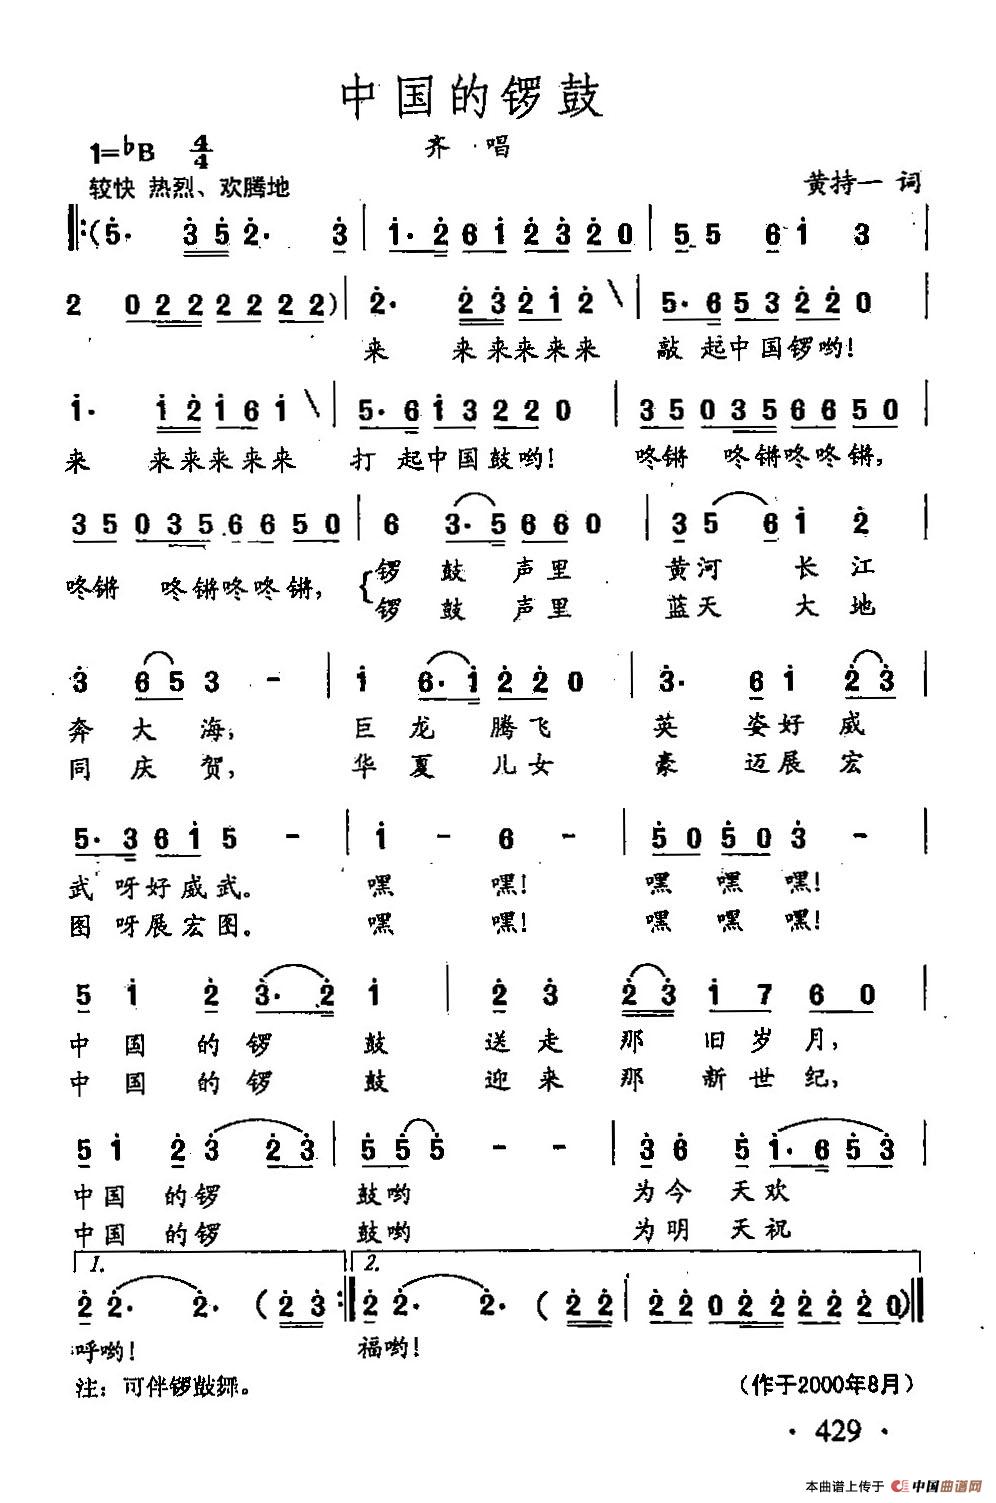 中国的锣鼓
齐 唱
1=♭B 4/4
较快 热烈、欢腾地
黄持一 词
𝄆(5· 3 5 2· 3 | 1· 2 6 1 2 3 2 0 | 5 5 6 1 3 |
2 0 2 2 2 2 2 2 2) | 2· 2 3 2 1 2 \ | 5· 6 5 3 2 2 0 |
来 来来来来来 敲起中国锣哟!
1· 1 2 1 6 1 \ | 5· 6 1 3 2 2 0 | 3 5 0 3 5 6 6 5 0 |
来 来来来来来 打起中国鼓哟! 咚锵 咚锵咚咚锵,
3 5 0 3 5 6 6 5 0 | 6 3· 5 6 6 0 | 3 5 6 1 2
咚锵 咚锵咚咚锵, 锣鼓声里 黄河长江
锣鼓声里 蓝天大地
3 6 5 3 - | 1 6· 1 2 2 0 | 3· 6 1 2 3 |
奔大海; 巨龙腾飞 英姿好威
同庆贺, 华夏儿女 豪迈展宏
5· 3 6 1 5 - | 1 - 6 - | 5 0 5 0 3 - |
武呀好威武。 嘿 嘿! 嘿 嘿 嘿!
图呀展宏图。 嘿 嘿! 嘿 嘿 嘿!
5 1 2 3· 2 1 | 2 3 2 3 1 7 6 0 |
中国的锣鼓 送走那旧岁月,
中国的锣鼓 迎来那新世纪,
5 1 2 3 2 3 | 5 5 5 - - | 3 6 5 1· 6 5 3 |
中国的锣 鼓哟 为今天欢
中国的锣 鼓哟 为明天祝
1. 2.
2 2· 2· (2 3 :‖ 2 2· 2· (2 2 | 2 2 0 2 2 2 2 2 0)‖
呼哟! 福哟!
注: 可伴锣鼓舞。
(作于2000年8月)
· 429 ·
本曲谱上传于 中国曲谱网